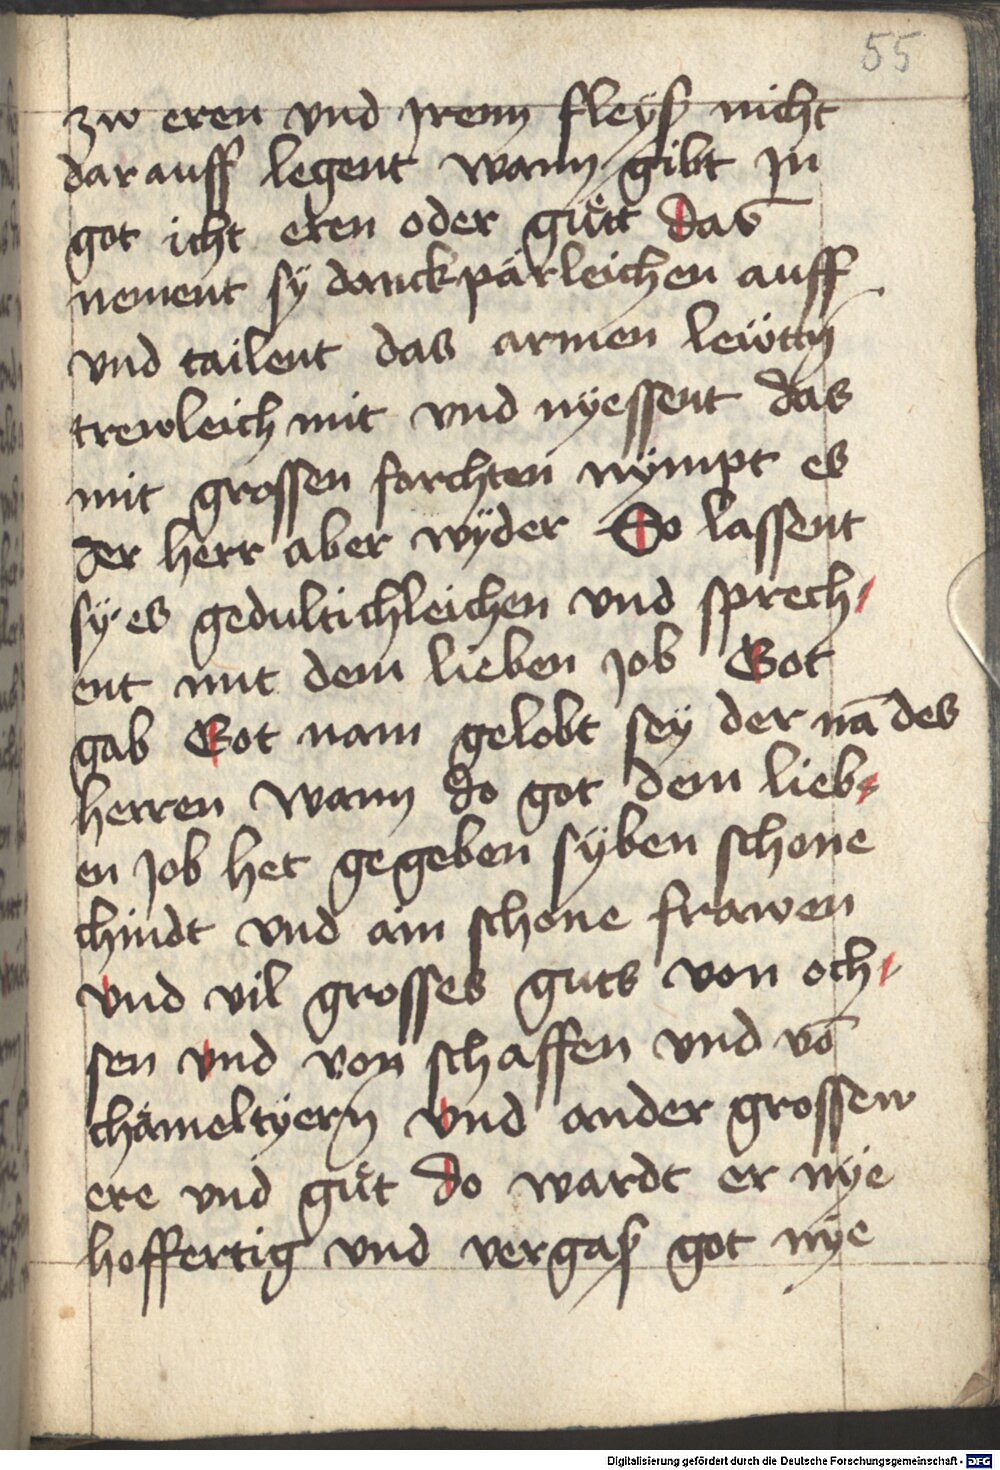 55
zw eren vnd jrenn fleyß nicht
dar auff legent wann gibt jn
got icht eren oder guͤtt das
nement sÿ danckpärleichen auff
vnd tailent das armen leẅttn
trewleich mit vnd nÿessent das
mit grossen forchten nÿmpt es
der herr aber wÿder So lassent
sÿ es gedultichleichen vnd sprech⸗
ent mit dem lieben job Got
gab Got nam gelobt sey der nā des
herren wann do got dem lieb⸗
en job het gegeben sÿben schone
chindt vnd ain schone frawen
vnd vil grosses guts von och⸗
sen vnd von schaffen vnd vō
chämeltÿern vnd ander grossew
ere vnd guͤt do wardt er nÿe
hoffertig vnd vergaß got nÿe
Digitalisierung gefördert durch die Deutsche Forschungsgemeinschaft - DFG